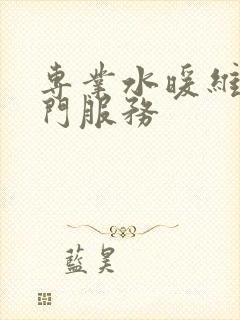 專業水暖維
門服務
藍昊